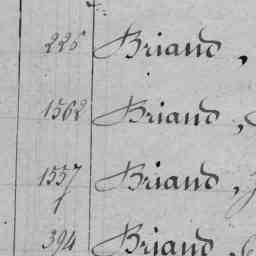 225 Briand,
1562 Briand,
1557 Briand,
394 Briand,